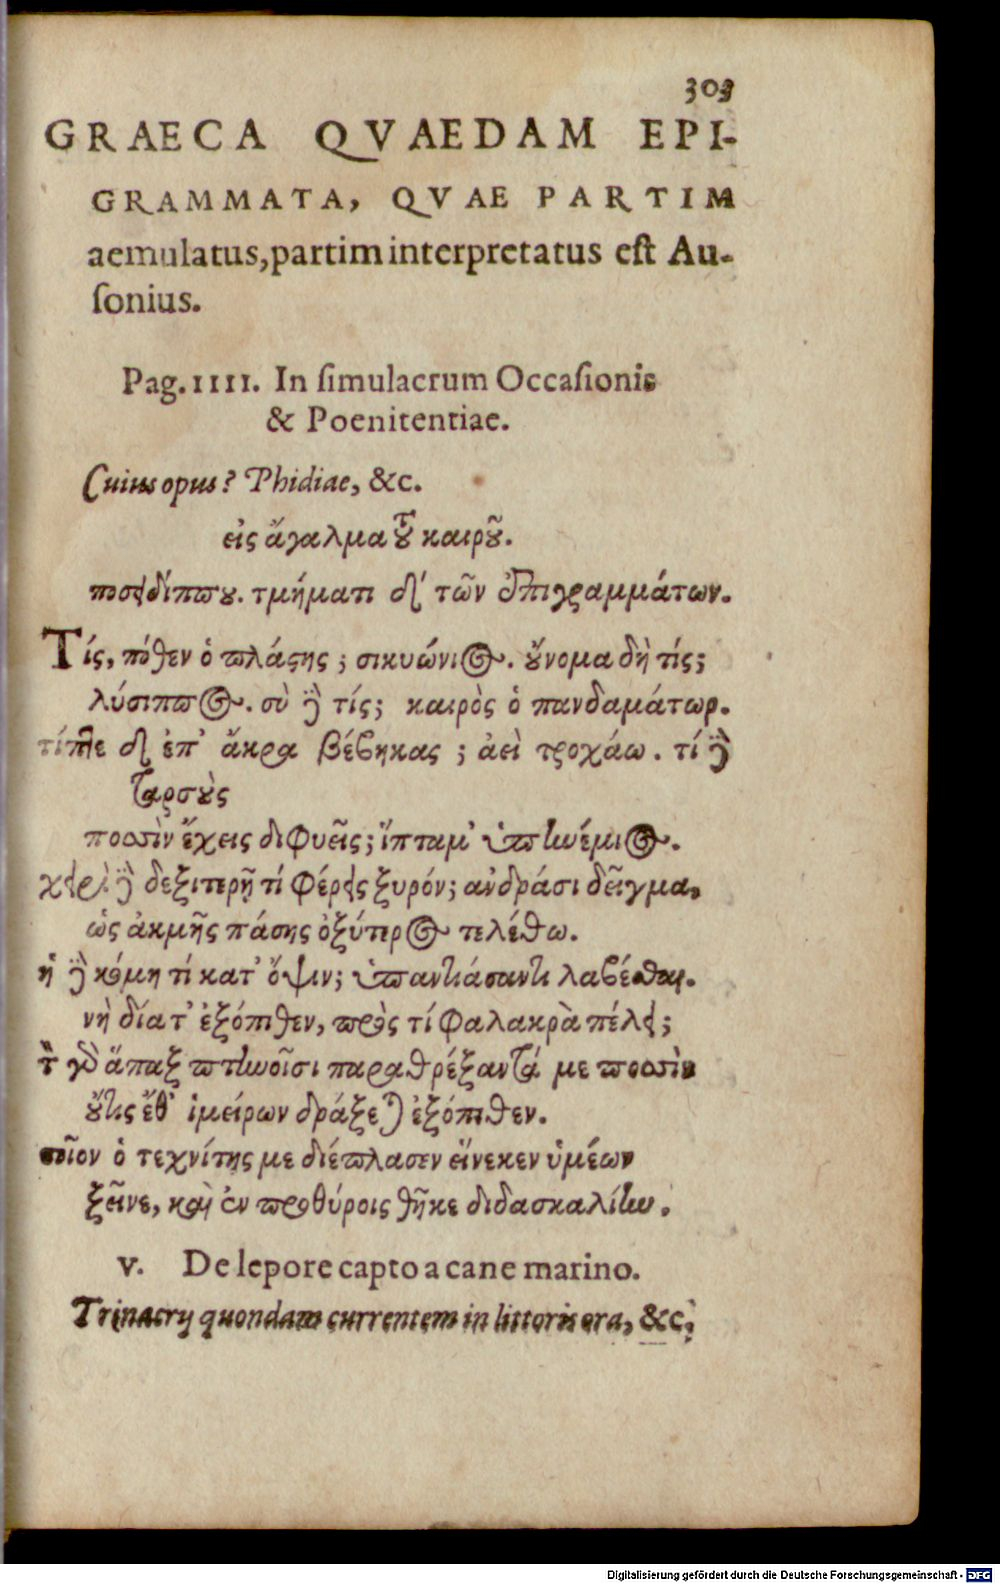 303
GRAECA QVAEDAM EPI-
GRAMMATA, QVAE PARTIM
aemulatus, partim interpretatus est Au-
sonius.
Pag. IIII. In simulacrum Occasionis
& Poenitentiae.
Cuius opus? Phidiae, &c.
εἰς ἄγαλμα τοῦ καιροῦ.
ποσειδίππου. τμήματι δ΄ τῶν ἐπιγραμμάτων.
Τίς, πόθεν ὁ πλάστης; σικυώνιος. οὔνομα δὴ τίς;
λύσιππος. σὺ δὲ τίς; καιρὸς ὁ πανδαμάτωρ.
τίπτε δ' ἐπ' ἄκρα βέβηκας; ἀεὶ τροχάω. τί δὲ
ταρσοὺς
ποσσὶν ἔχεις διφυεῖς; ἵπταμ' ὑπηνέμιος.
χειρὶ δὲ δεξιτερῇ τί φέρεις ξυρόν; ἀνδράσι δεῖγμα,
ὡς ἀκμῆς πάσης ὀξύτερος τελέθω.
ἡ δὲ κόμη τί κατ' ὄψιν; ὑπαντιάσαντι λαβέσθαι.
νὴ δία τ' ἐξόπιθεν, πρὸς τί φαλακρὰ πέλει;
τὸν γὸ ἅπαξ πτηνοῖσι παραθρέξαντά με ποσσὶν
οὔτις ἔθ' ἱμείρων δράξεται ἐξόπιθεν.
ποῖον ὁ τεχνίτης με διέπλασεν εἵνεκεν ὑμέων
ξεῖνε, καὶ ἐν προθύροις θῆκε διδασκαλίην.
v. De lepore capto a cane marino.
Trinacrij quondam currentem in littoris ora, &c.
Digitalisierung gefördert durch die Deutsche Forschungsgemeinschaft - DFG